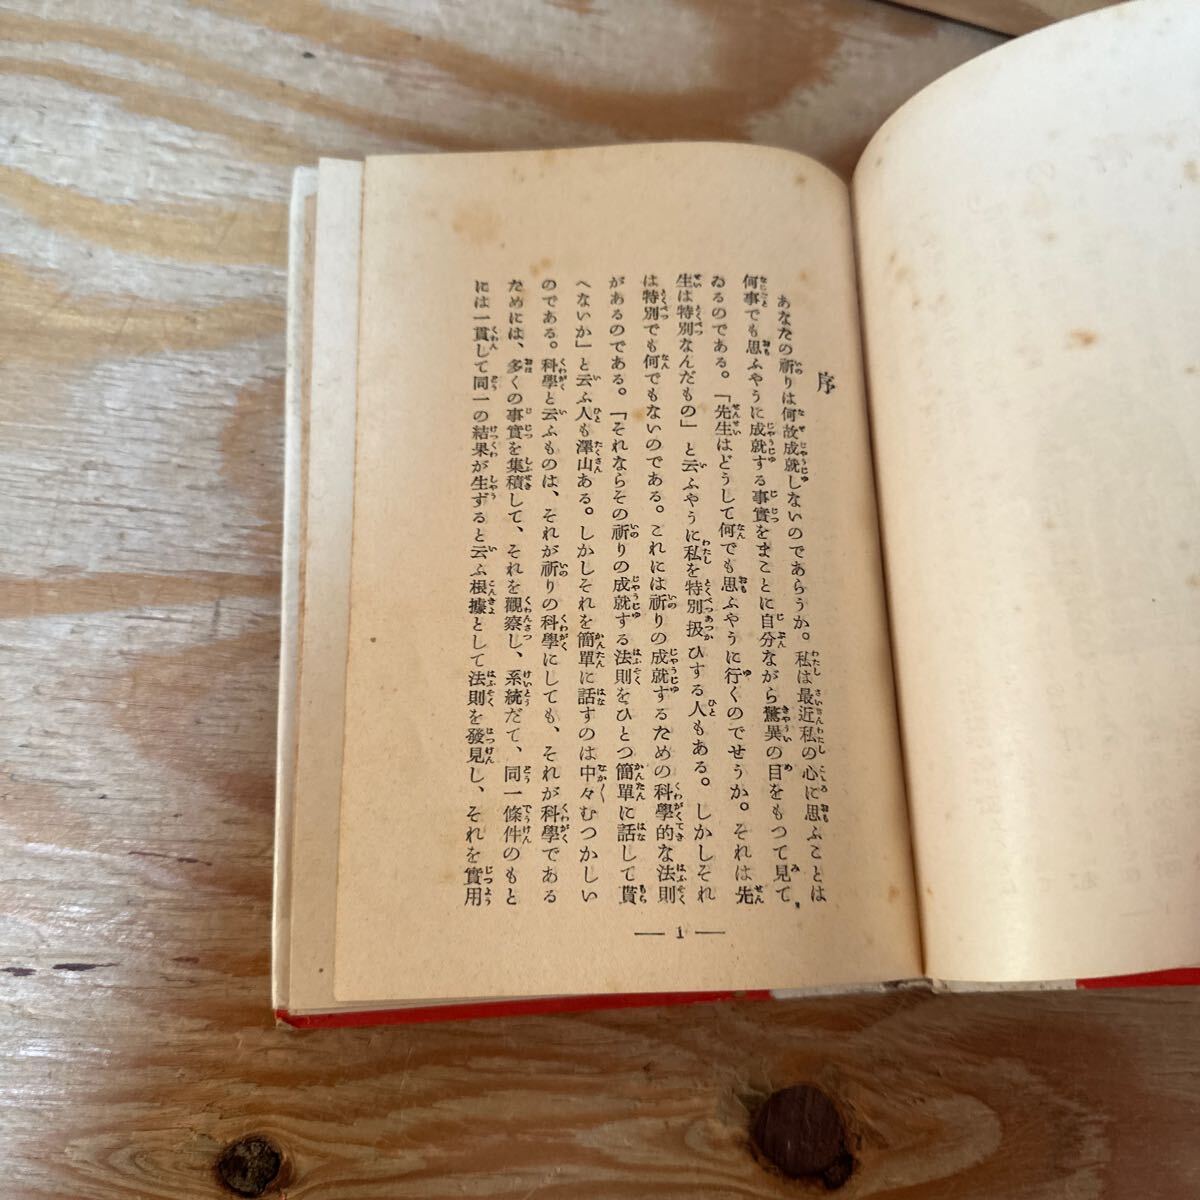 序
あなたの祈りは何故成就しないのであらうか。私は最近私の心に思ふことは
何事でも思ふやうに成就する事實をまことに自分ながら驚異の目をもつて見て
ゐるのである。「先生はどうして何でも思ふやうに行くのでせうか。それは先
生は特別なんだもの」と云ふやうに私を特別扱ひする人もある。しかしそれ
は特別でも何でもないのである。これには祈りの成就するための科學的な法則
があるのである。「それならその祈りの成就する法則をひとつ簡單に話して貰
へないか」と云ふ人も澤山ある。しかしそれを簡單に話すのは中々むつかしい
のである。科學と云ふものは、それが祈りの科學にしても、それが科學である
ためには、多くの事實を集積して、それを觀察し、系統だて、同一條件のもと
には一貫して同一の結果が生ずると云ふ根據として法則を發見し、それを實用
— 1 —